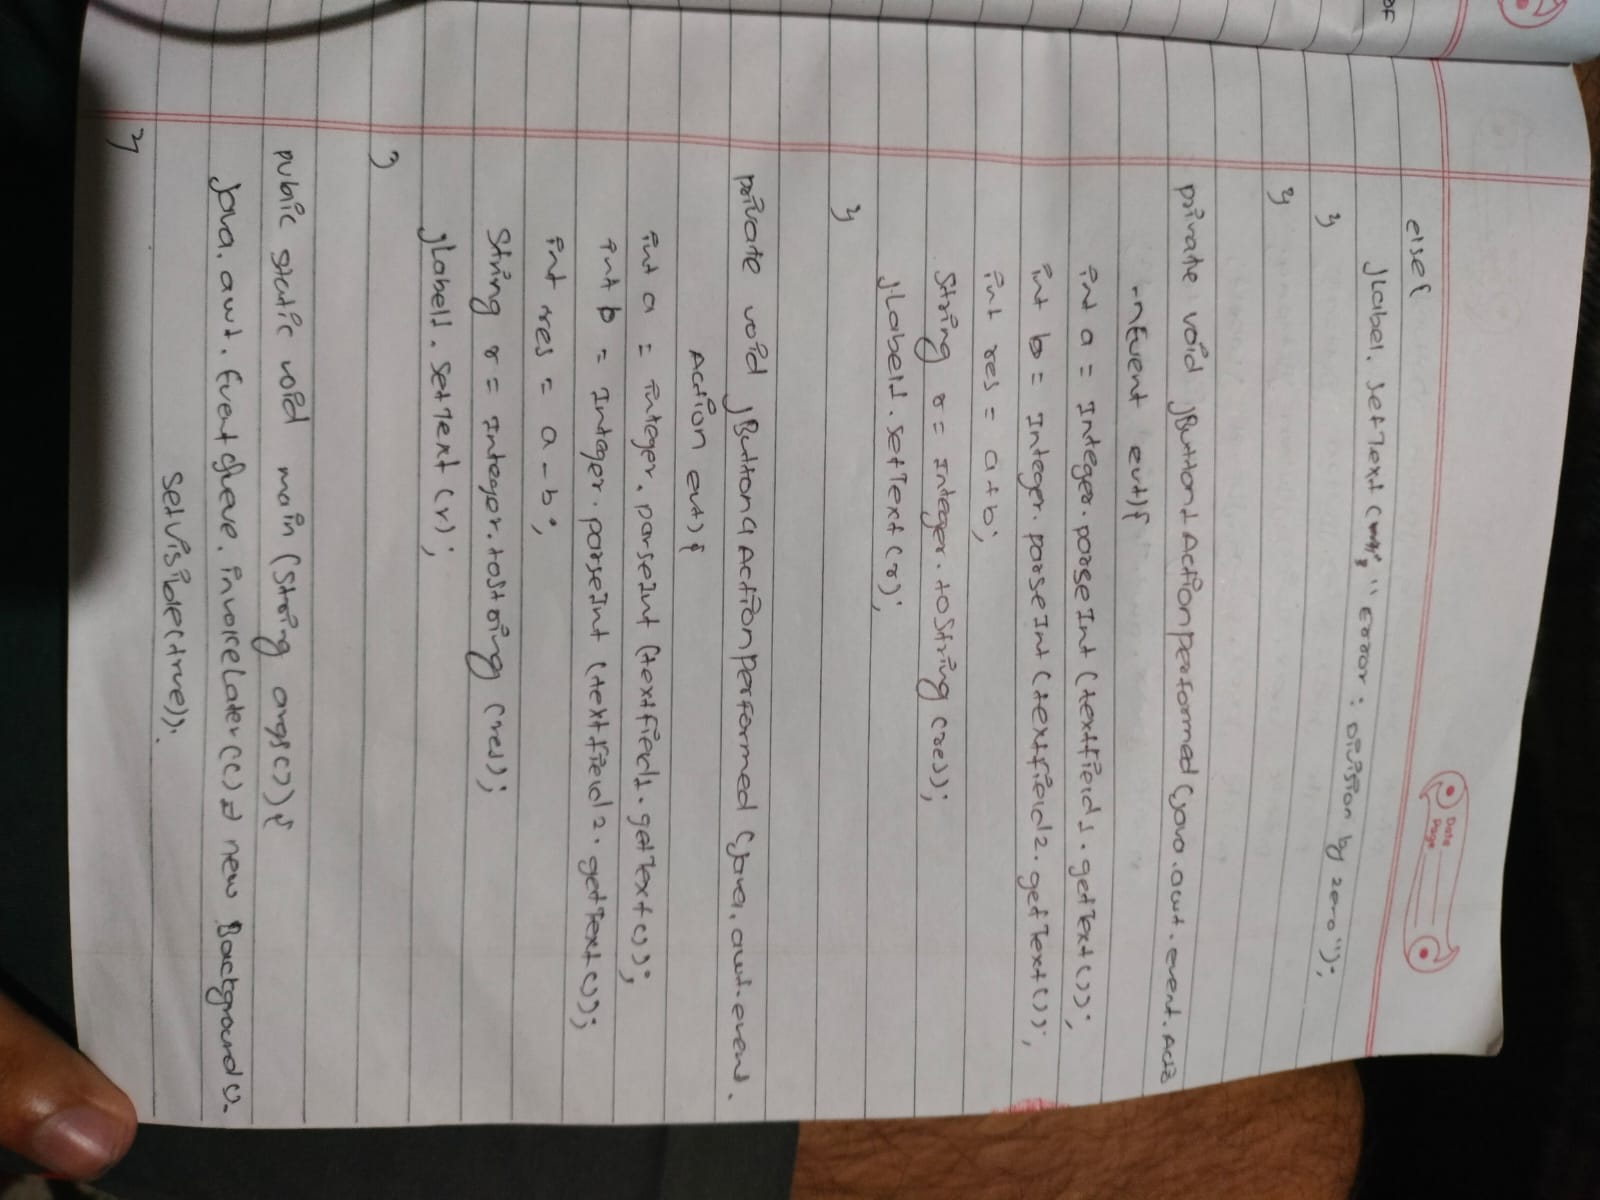 Date
Page
else{
jLabel. setText ( "Error : Division by zero");
}
}
private void jButton1ActionPerformed (java.awt.event.Actio
-nEvent evt){
int a = Integer.parseInt (textfield1.getText());
int b = Integer.parseInt (textfield2.getText());
int res = a+b;
String r = Integer.toString (res);
jLabel1.setText (r);
}
private void jButton4ActionPerformed (java.awt.event.
Action evt){
int a = integer.parseInt (textfield1.getText());
int b = Integer.parseInt (textfield2.getText());
int res = a-b;
String r = Integer.toString (res);
jLabel1.setText (r);
}
pubic static void main (String args()){
java.awt.Event
invokeLater(()
new Background().
setVisible(true));
}